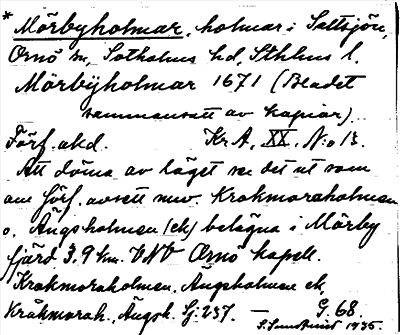 * Mörbyholmar, holmar i Saltsjön,
Ornö sn, Sotholms hd, Sthlms l.
Mörbÿholmar 1671 (Bladet
sammansatt av kopior)
Förf. okd. Kr. A, XX, N:o 13.
Att döma av läget ser det ut som
om förf. avsett nuv. Krokmoraholmen
o. Ängsholmen (ek) belägna i Mörby
fjärd 3.9 km. VNV Ornö kapell.
Krokmoraholmen, Ängsholmen ek,
Kråkmorah., Ängsh. Sj. 237. — G. 68.
1935